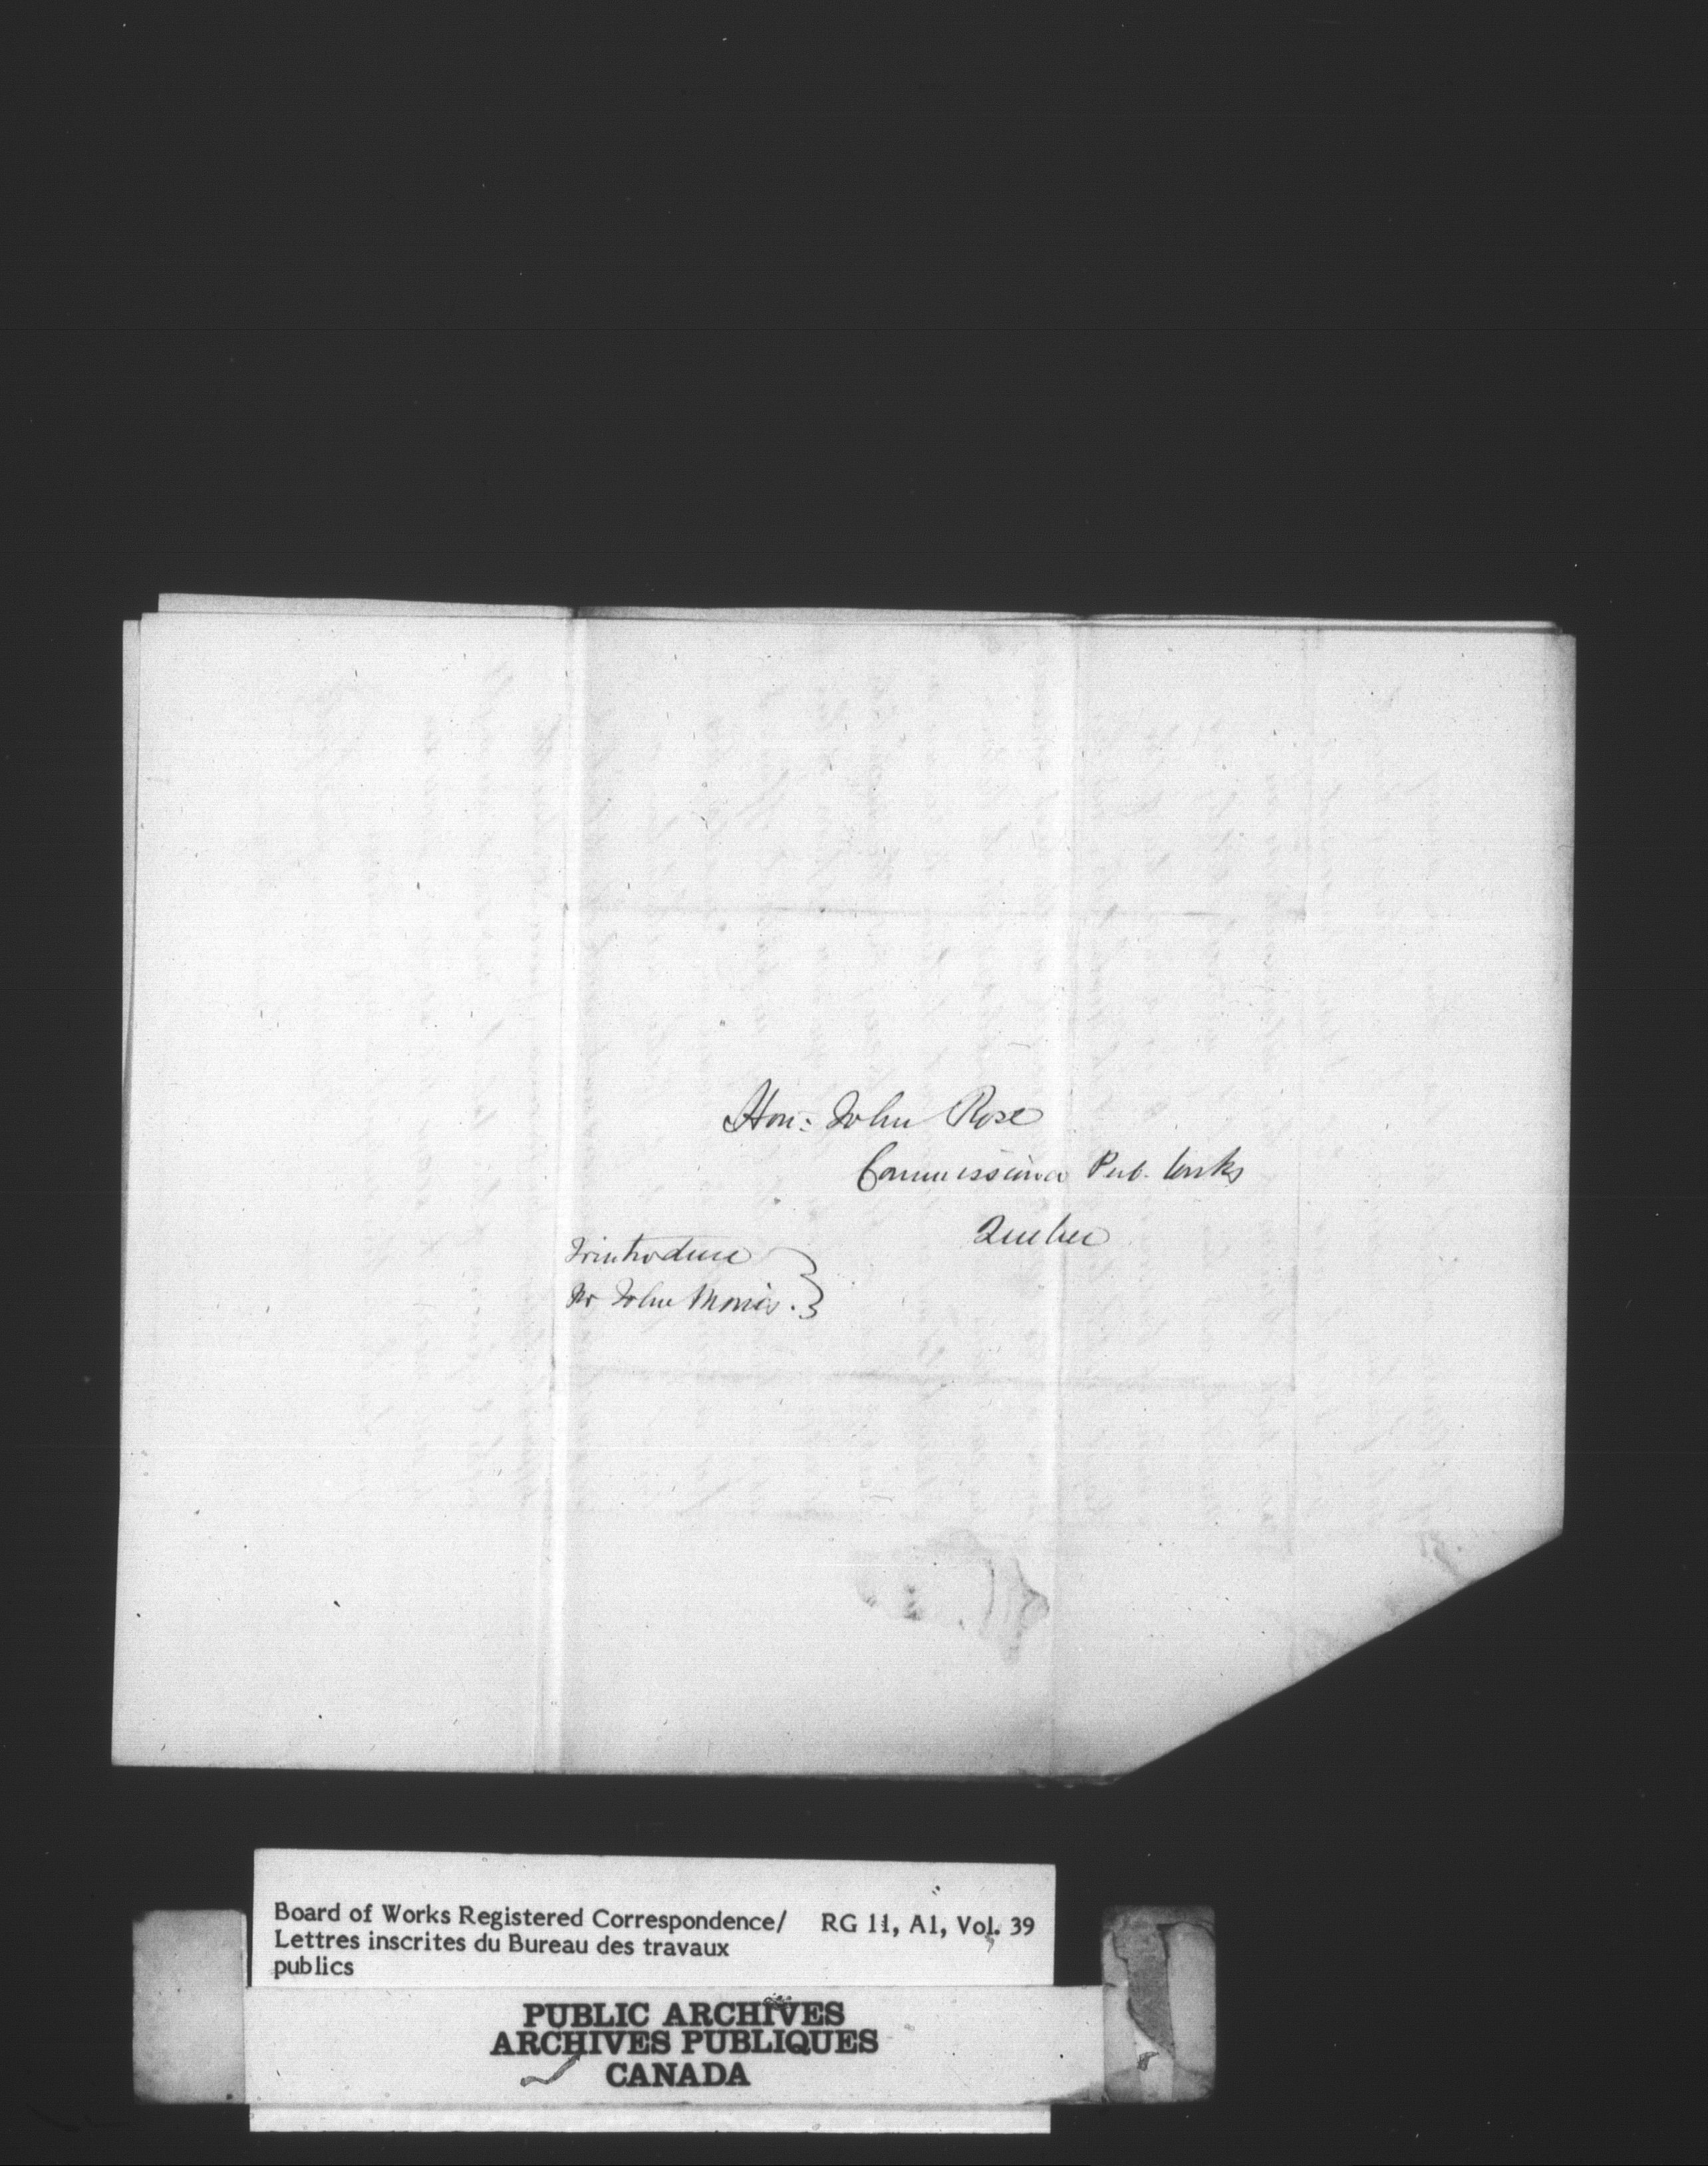 Hon: John Rose
Commissioner Pub. Works
Quebec
To introduce
Mr John Morris.
Board of Works Registered Correspondence/ RG 11, A1, Vol. 39
Lettres inscrites du Bureau des travaux
publics
PUBLIC ARCHIVES
ARCHIVES PUBLIQUES
CANADA